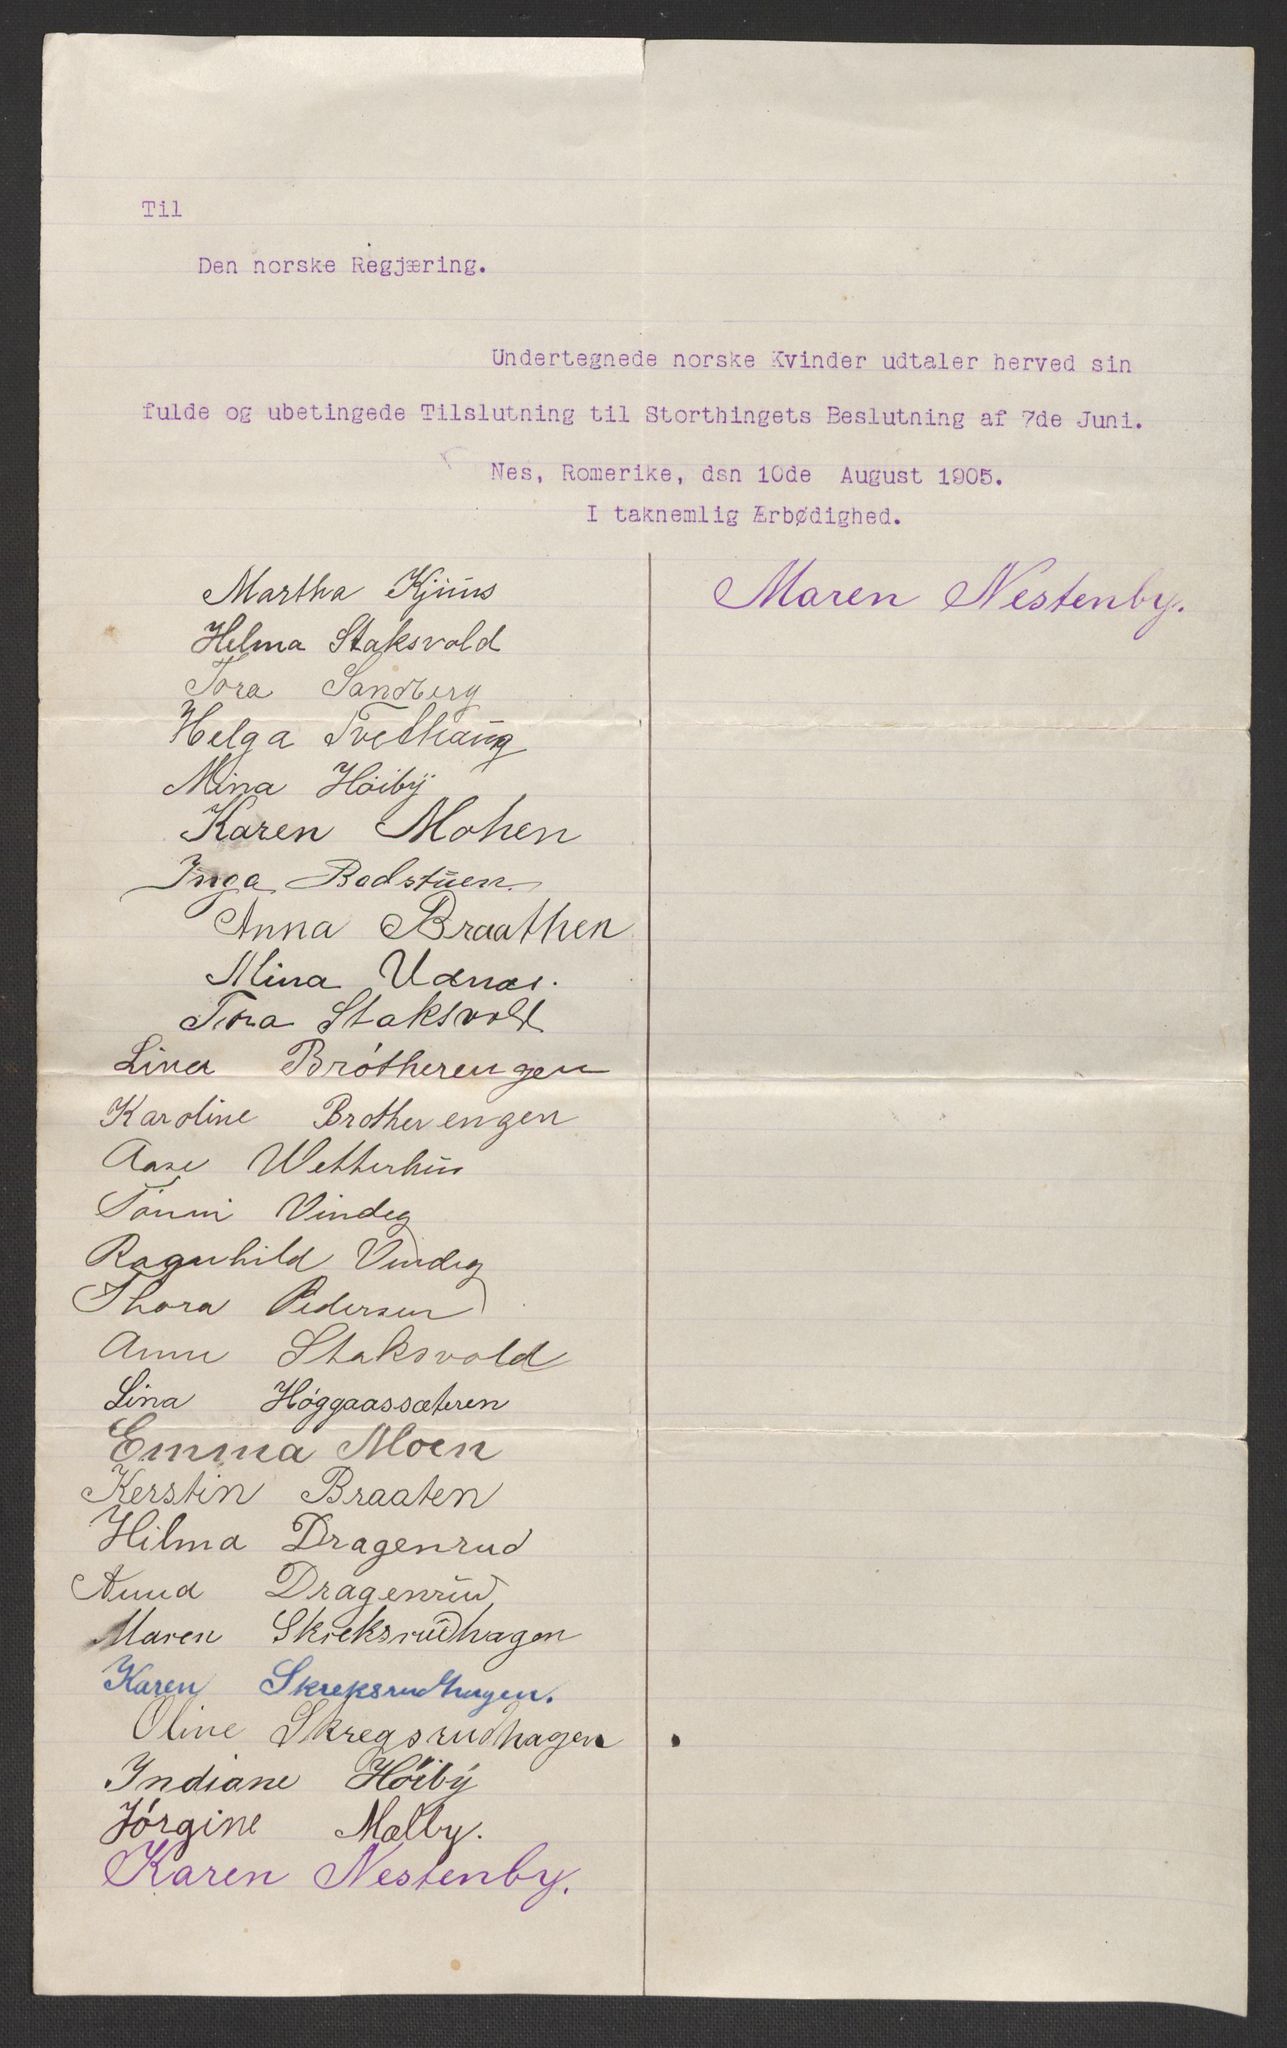 Til
Den norske Regjæring.
Undertegnede norske Kvinder udtaler herved sin
fulde og ubetingede Tilslutning til Storthingets Beslutning af 7de Juni.
Nes, Romerike, dsn 10de August 1905.
I taknemlig Ærbødighed.
Martha Kjuus
Helma Staksvold
Tora Sandberg
Helga Tvethaug
Mina Høiby
Karen Mohen
Inga Badstuen
Anna Braathen
Mina Udnæs.
Tora Staksvold
Lina Brótherengen
Karoline Brotherengen
Aase Wetterhus
Vindeg
Ragnhild Vindeg
Thora Pedersen
Anne Staksvold
Lina Høggaassæteren
Emma Moen
Kerstin Braaten
Hilma Dragenrud
Dragenrud
Maren Skreksrudhagen
Karen Skreksrudhagen.
Oline Skregsrudhagen
Indiane Høiby
Jórgine Mælby.
Karen Nestenby.
Maren Nestenby.